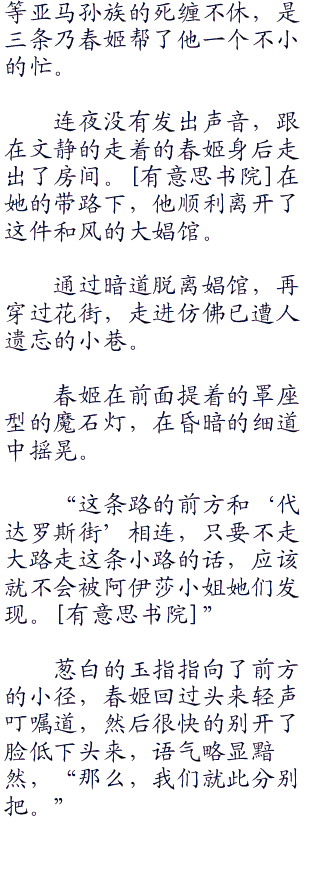 等亚马孙族的死缠不休，是
三条乃春姬帮了他一个不小
的忙。
连夜没有发出声音，跟
在文静的走着的春姬身后走
出了房间。[有意思书院]在
她的带路下，他顺利离开了
这件和风的大娼馆。
通过暗道脱离娼馆，再
穿过花街，走进仿佛已遭人
遗忘的小巷。
春姬在前面提着的罩座
型的魔石灯，在昏暗的细道
中摇晃。
“这条路的前方和‘代
达罗斯街’相连，只要不走
大路走这条小路的话，应该
就不会被阿伊莎小姐她们发
现。[有意思书院]”
葱白的玉指指向了前方
的小径，春姬回过头来轻声
叮嘱道，然后很快的别开了
脸低下头来，语气略显黯
然，“那么，我们就此分别
把。”